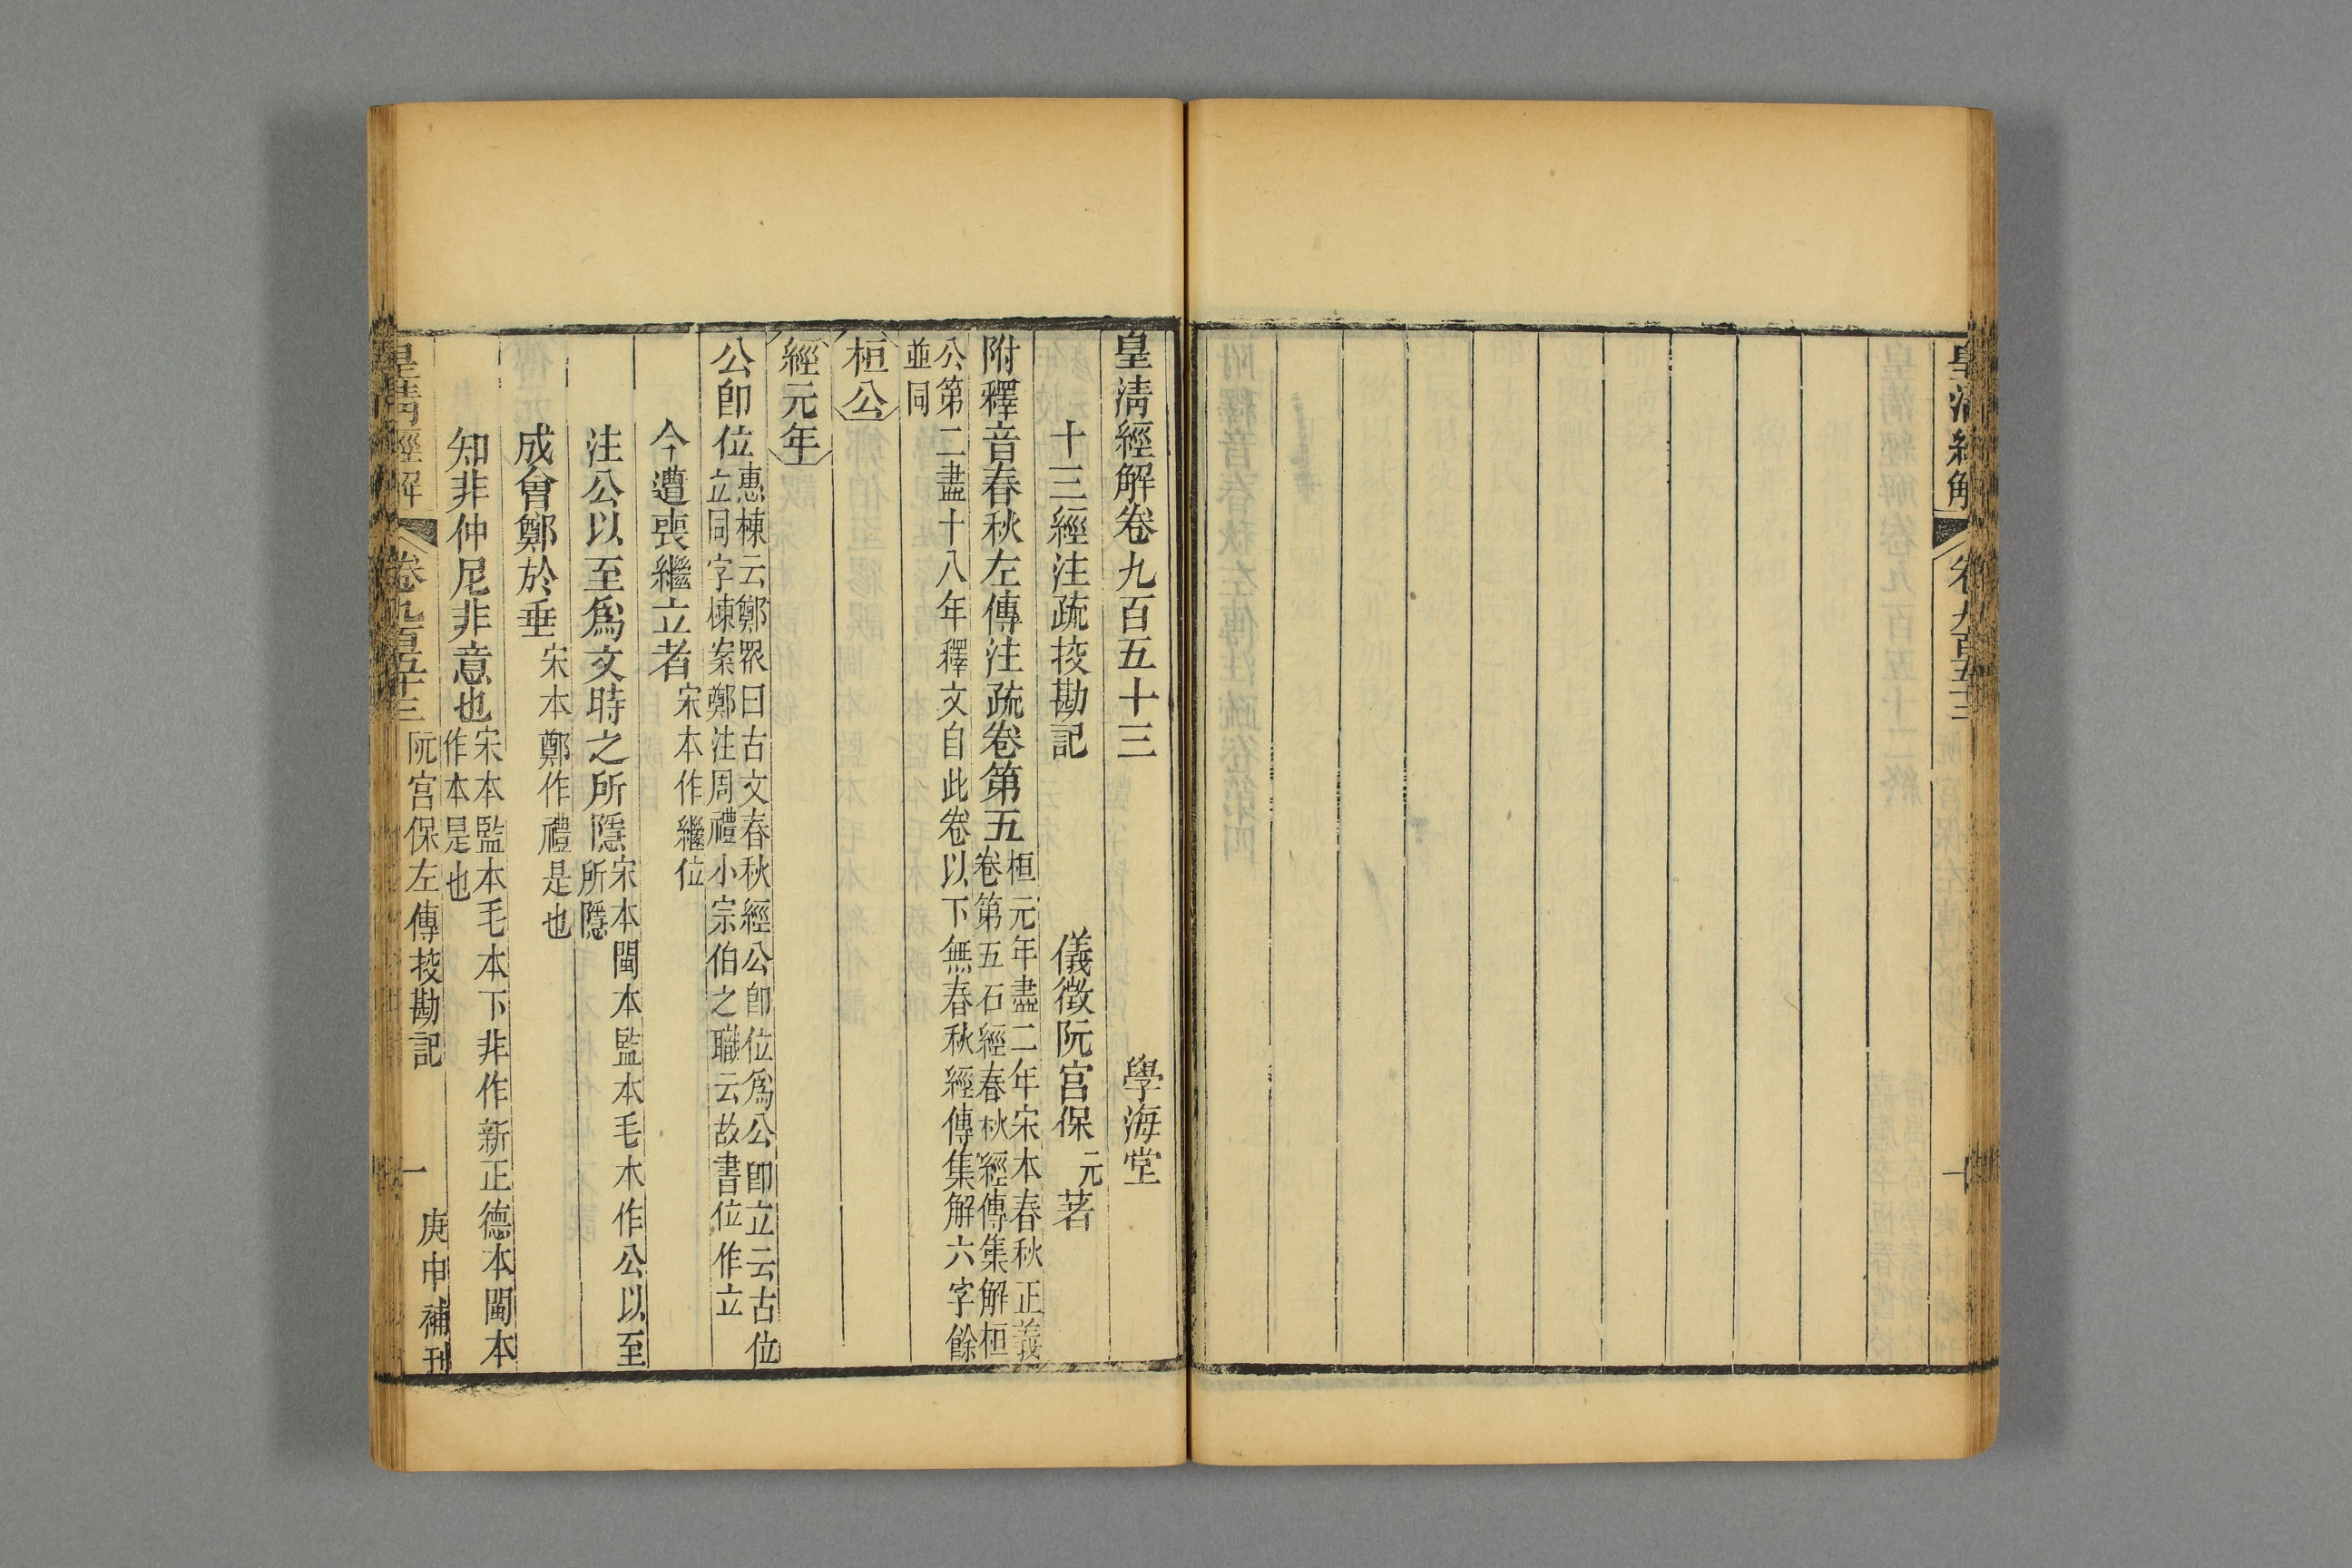 皇清經解卷九百五十三 學海堂
十三經注疏挍勘記 儀徵阮宮保元著
附釋音春秋左傳注疏卷第五 桓元年盡二年宋本春秋正義
卷第五石經春秋經傳集解桓
公第二盡十八年釋文自此卷以下無春秋經傳集解六字餘
並同
桓公
經元年
公卽位 惠棟云鄭眾曰古文春秋經公卽位爲公卽立云古位
立同字棟案鄭注周禮小宗伯之職云故書位作立
今遭喪繼立者 宋本作繼位
注公以至爲文時之所隱 宋本閩本監本毛本作公以至
所隱
成會鄭於垂 宋本鄭作禮是也
知非仲尼非意也 宋本監本毛本下非作新正德本閩本
作本是也
皇清經解 卷九百五十三 阮宮保左傳挍勘記 一 庚申補刊